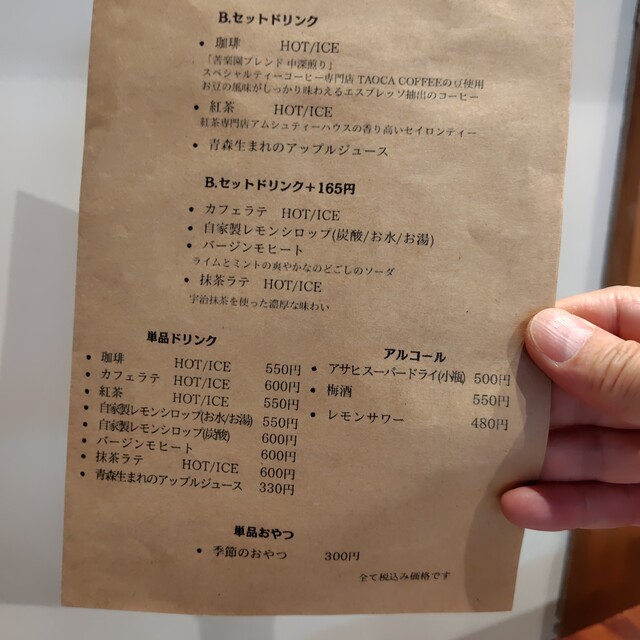 B.セットドリンク
• 珈琲 HOT/ICE
「苦楽園ブレンド 中深煎り」
スペシャルティーコーヒー専門店 TAOCA COFFEEの豆使用
お豆の風味がしっかり味わえるエスプレッソ抽出のコーヒー
• 紅茶 HOT/ICE
紅茶専門店アムシュティーハウスの香り高いセイロンティー
• 青森生まれのアップルジュース
B.セットドリンク+165円
• カフェラテ HOT/ICE
• 自家製レモンシロップ(炭酸/お水/お湯)
• バージンモヒート
ライムとミントの爽やかなのどごしのソーダ
• 抹茶ラテ HOT/ICE
宇治抹茶を使った濃厚な味わい
単品ドリンク
• 珈琲 HOT/ICE 550円
• カフェラテ HOT/ICE 600円
• 紅茶 HOT/ICE 550円
• 自家製レモンシロップ(お水/お湯) 550円
• 自家製レモンシロップ(炭酸) 600円
• バージンモヒート 600円
• 抹茶ラテ HOT/ICE 600円
• 青森生まれのアップルジュース 330円
アルコール
• アサヒスーパードライ(小瓶) 500円
• 梅酒 550円
• レモンサワー 480円
単品おやつ
• 季節のおやつ 300円
全て税込み価格です